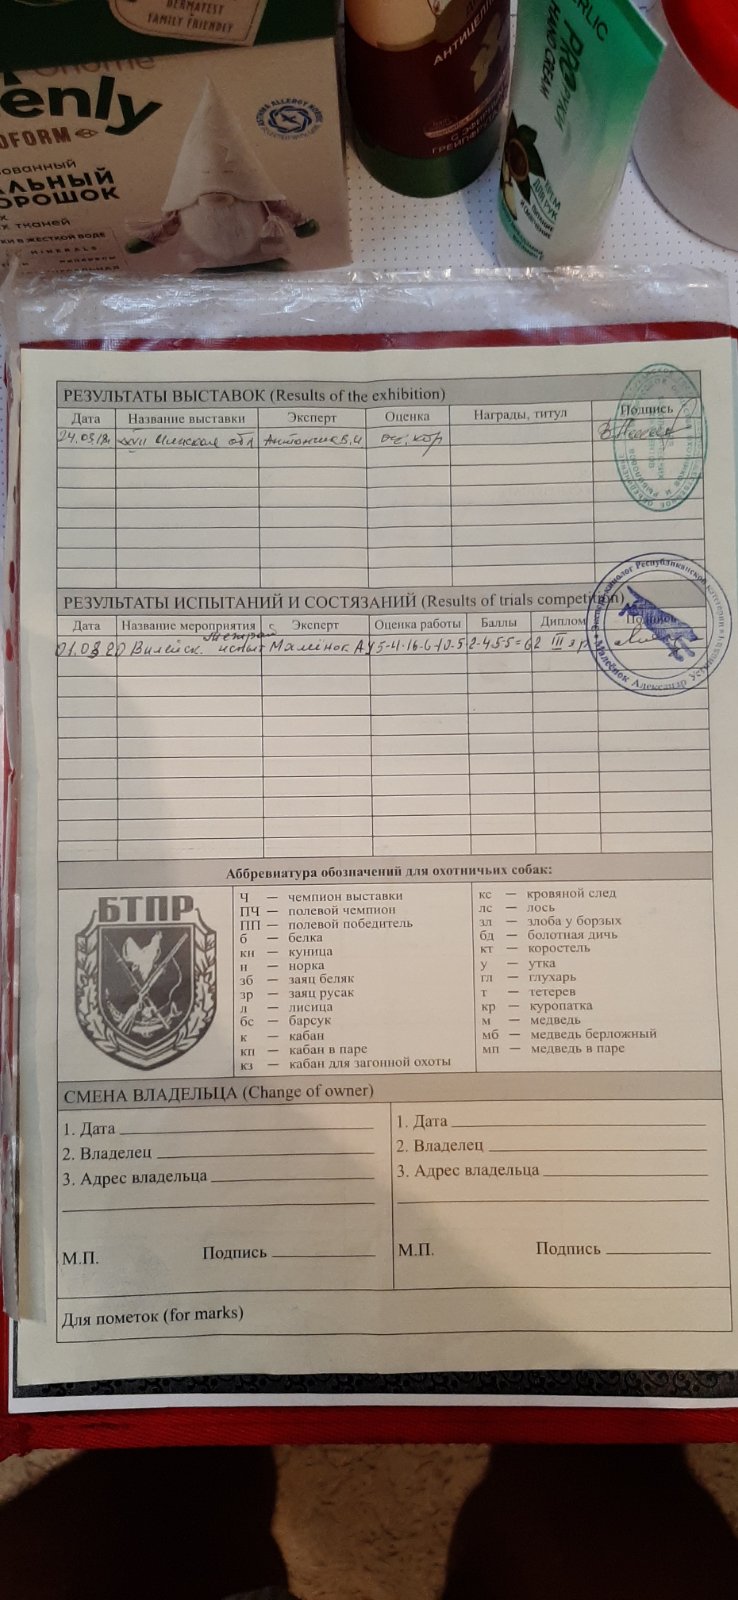 DERMATEST
FAMILY FRIENDLY
Gnome
enly
OFORM
АЛЬНЫЙ
ОРОШОК
х тканей
КИ В ЖЕСТКОЙ ВОДЕ
MINERALS
АНТИЦЕЛЛ
С ЭФИРНЫМ
ГРЕЙПФРУТА
HAND CREAM
PRO РУКИ
КРЕМ
ДЛЯ РУК
РЕЗУЛЬТАТЫ ВЫСТАВОК (Results of the exhibition)
Дата Название выставки Эксперт Оценка Награды, титул Подпись
XXVII Минская обл
РЕЗУЛЬТАТЫ ИСПЫТАНИЙ И СОСТЯЗАНИЙ (Results of trials competition)
Дата Название мероприятия Эксперт Оценка работы Баллы Диплом
01.03.20 Вилейск. испыт Малёнок А.У 5-4-16-6-10-5 2-4-5-5=62 III
Эксперт-кинолог Республиканской категории
Александр
Аббревиатура обозначений для охотничьих собак:
БТПР
Ч — чемпион выставки
ПЧ — полевой чемпион
ПП — полевой победитель
б — белка
кн — куница
н — норка
зб — заяц беляк
зр — заяц русак
л — лисица
бс — барсук
к — кабан
кп — кабан в паре
кз — кабан для загонной охоты
кс — кровяной след
лс — лось
зл — злоба у борзых
бд — болотная дичь
кт — коростель
у — утка
гл — глухарь
т — тетерев
кр — куропатка
м — медведь
мб — медведь берложный
мп — медведь в паре
СМЕНА ВЛАДЕЛЬЦА (Change of owner)
1. Дата
2. Владелец
3. Адрес владельца
М.П. Подпись
1. Дата
2. Владелец
3. Адрес владельца
М.П. Подпись
Для пометок (for marks)